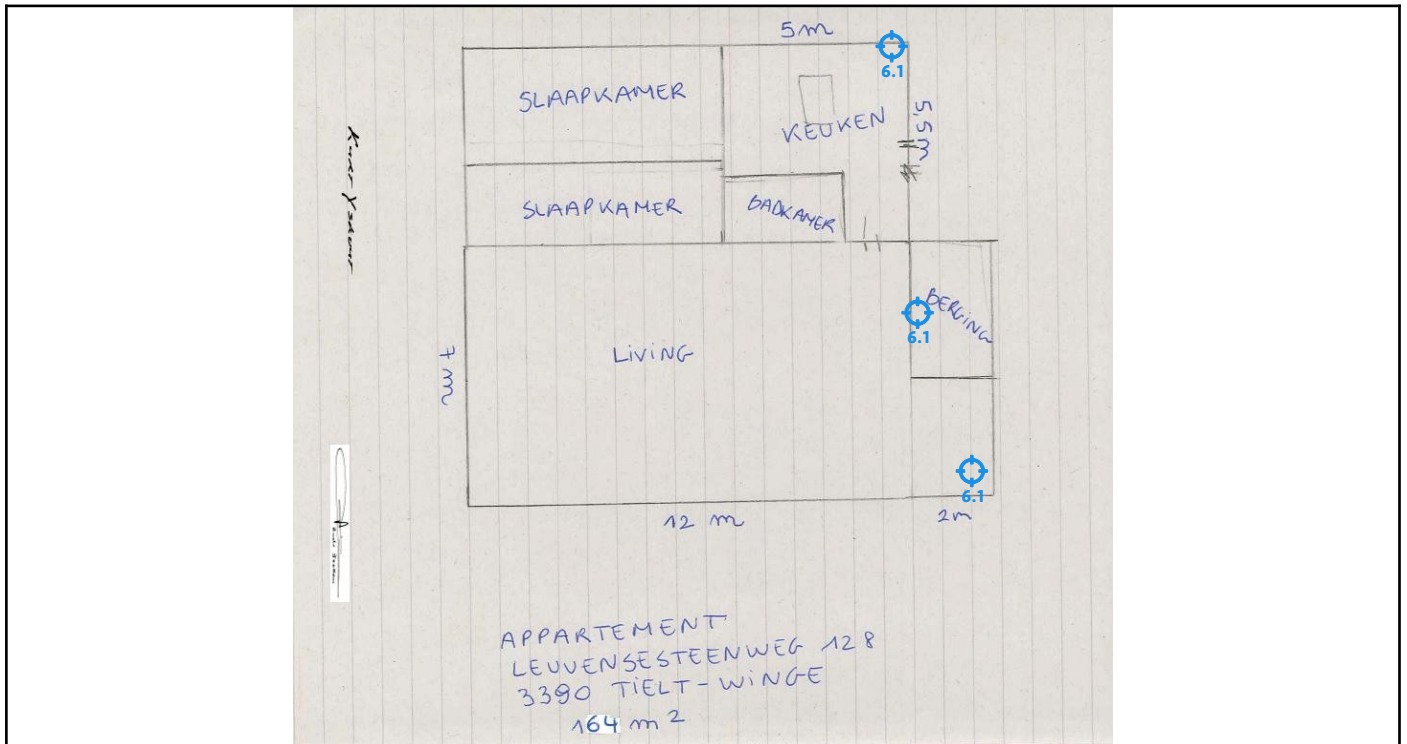 5m
6.1
SLAAPKAMER
KEUKEN
5,5m
SLAAPKAMER
BADKAMER
BERGING
6.1
LIVING
7m
6.1
12 m
2m
APPARTEMENT
LEUVENSESTEENWEG 128
3390 TIELT-WINGE
164 m2